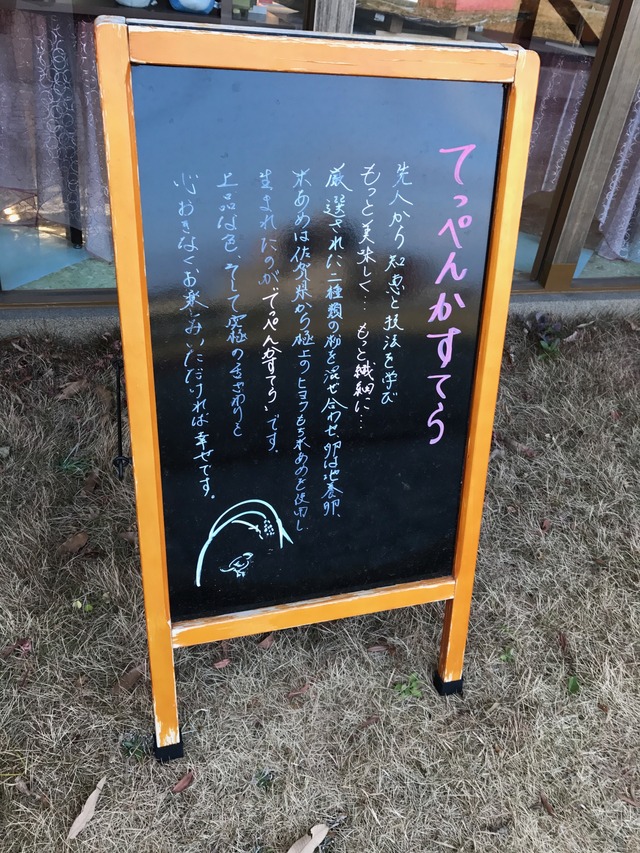 てっぺんかすてら
先人から知恵と技法を学び
もっと美味しく… もっと繊細に…
厳選された二種類の粉を混ぜ合わせ 卵は地養卵、
水あめは佐賀県から極上のヒヨクもち水あめを使用し
生まれたのがてっぺんかすてらです。
上品な色、そして究極の舌ざわりと
心おきなくお楽しみいただければ幸せです。